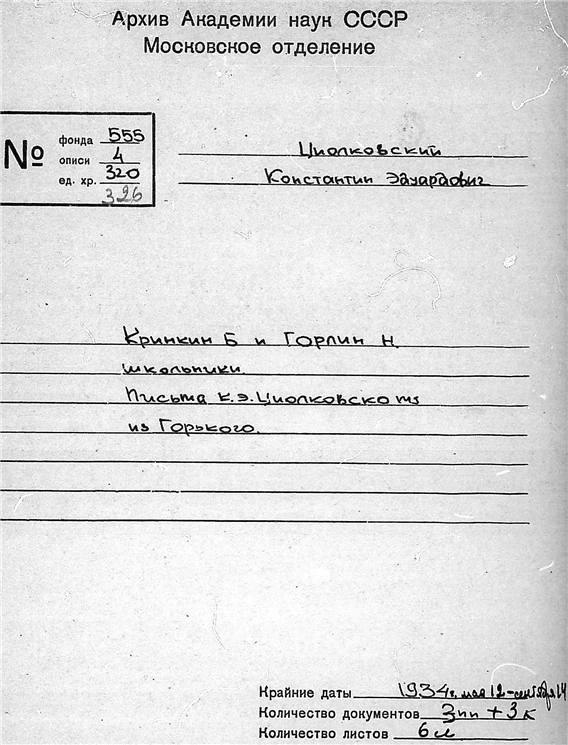 Архив Академии наук СССР
Московское отделение
№
фонда 555
описи 4
ед. хр. 320
326
Циолковский
Константин Эдуардович
Кринкин Б и Горлин Н.
школьники.
Письма К.Э.Циолковскому
из Горького.
Крайние даты 1934г. мая 12-сентября 14
Количество документов 3пп + 3к
Количество листов 6л